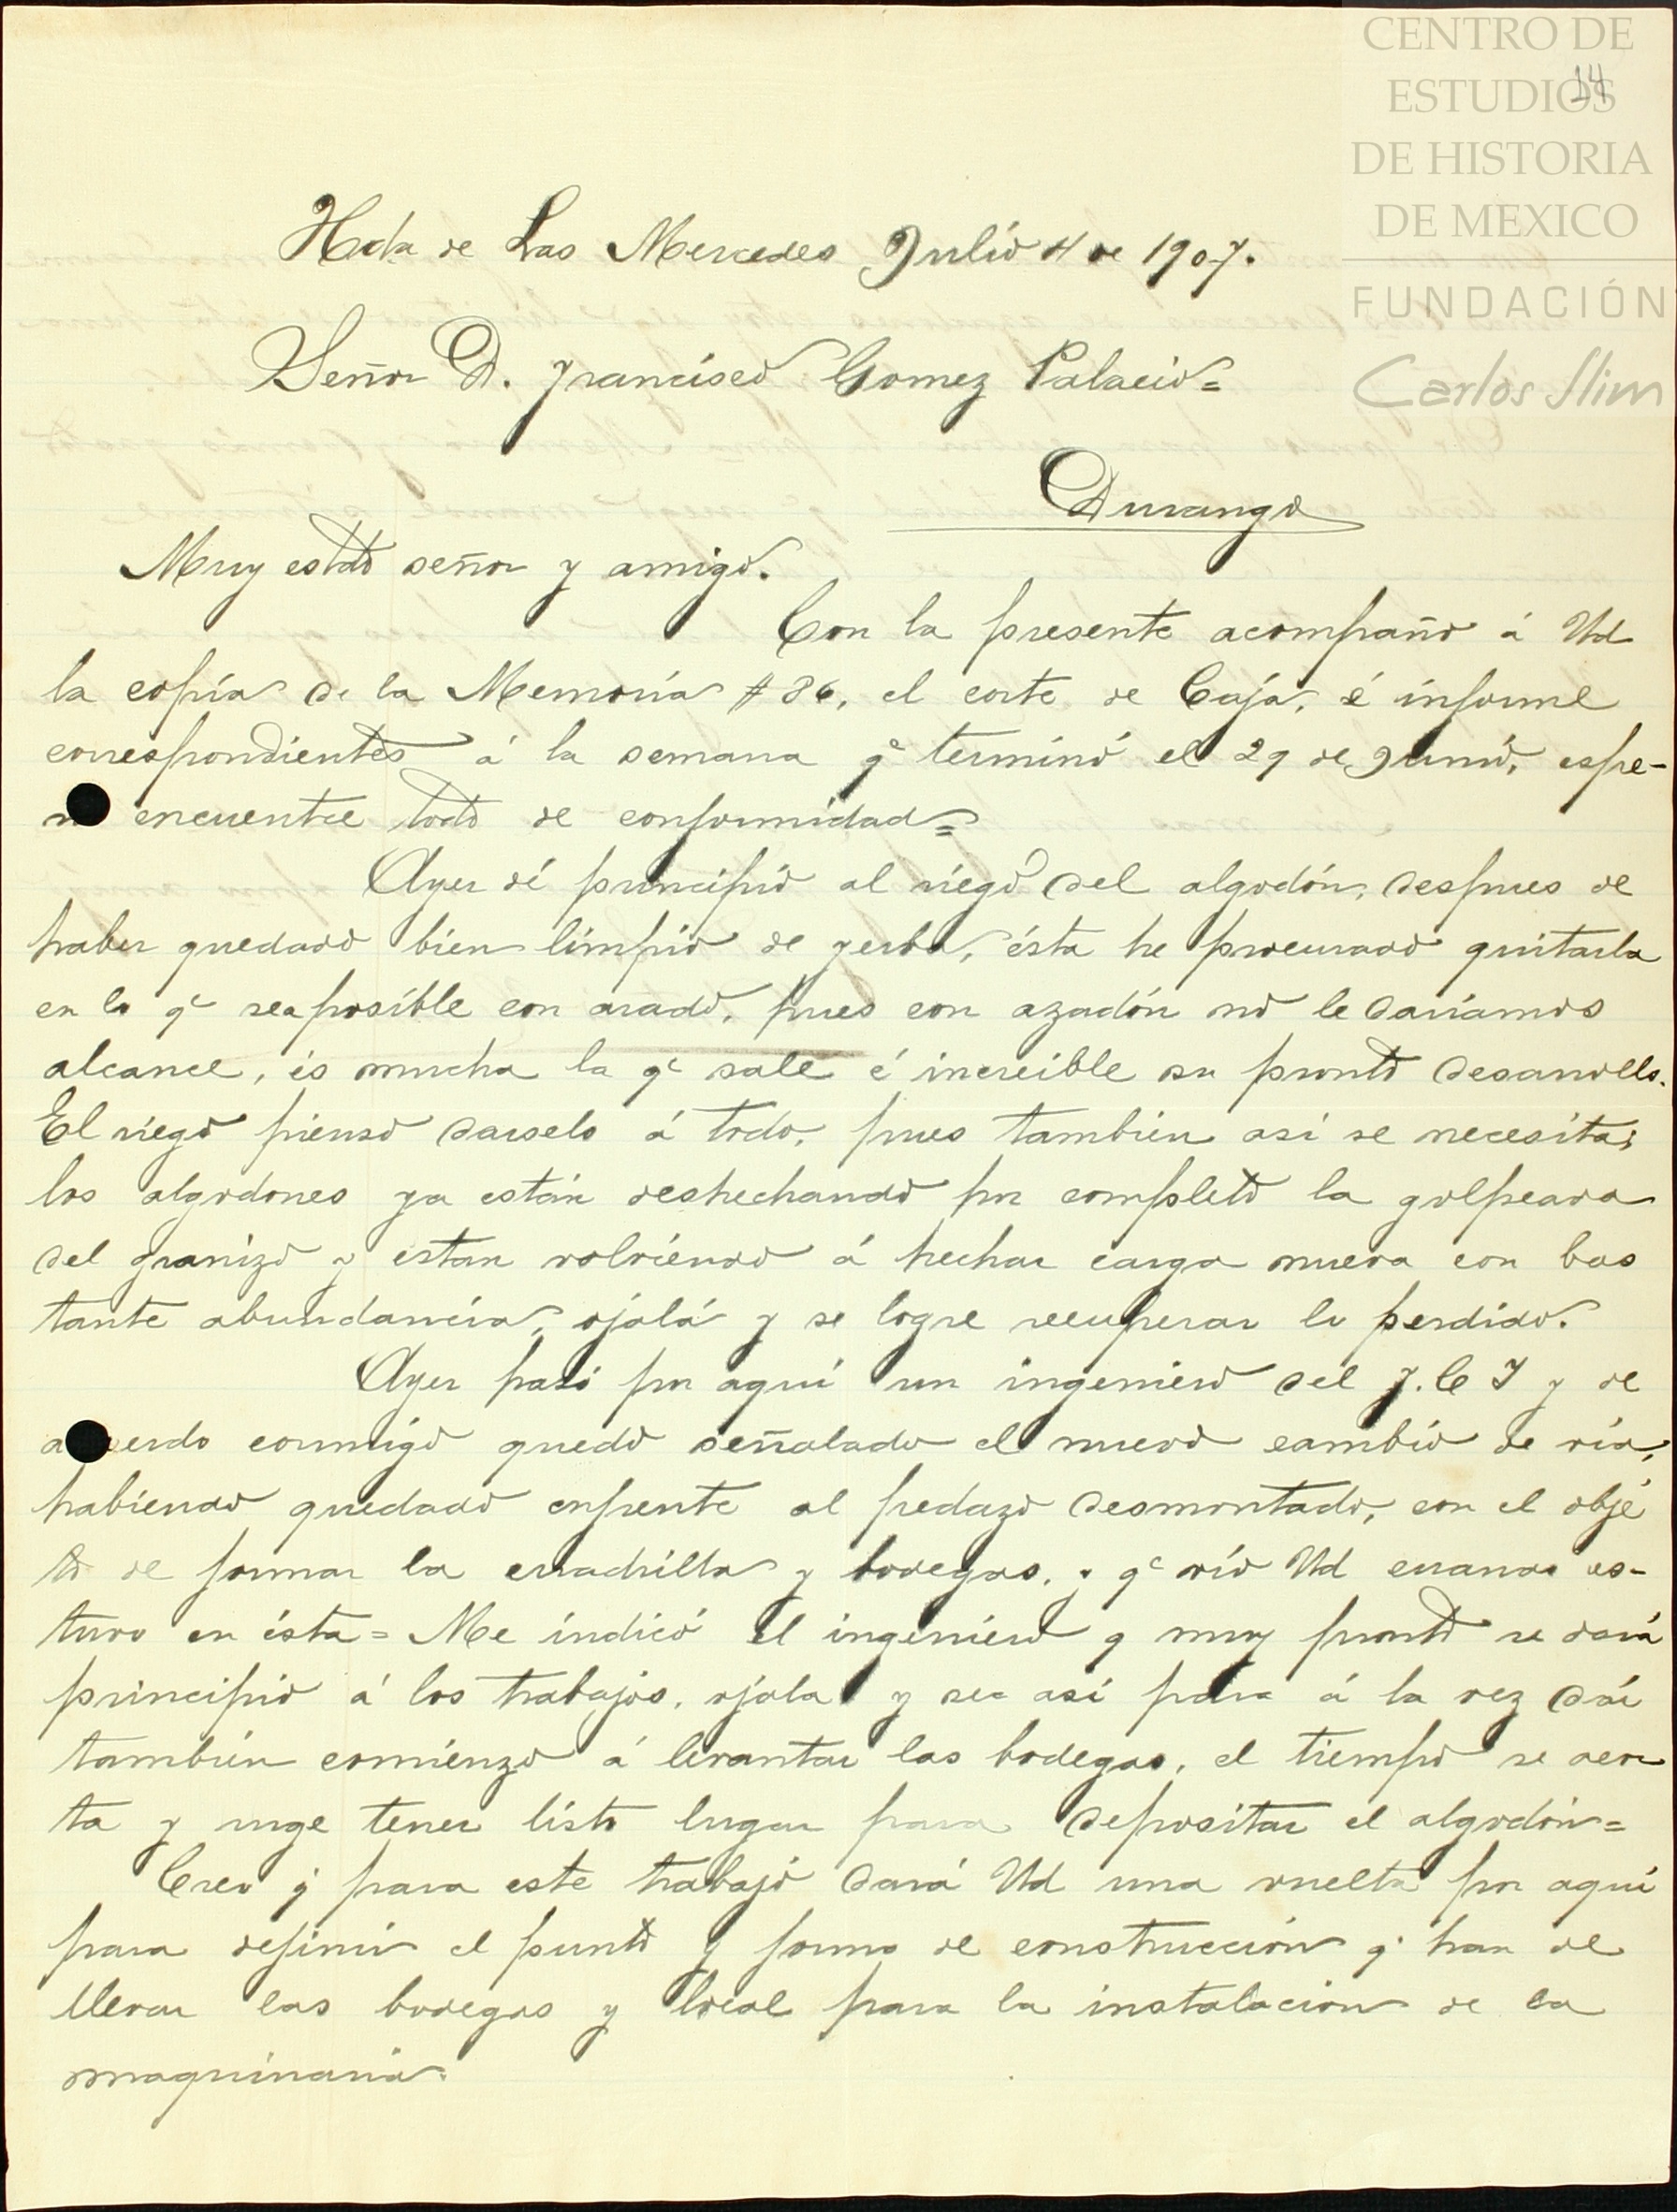 CENTRO DE
ESTUDIOS
DE HISTORIA
DE MEXICO
FUNDACIÓN
Carlos Slim
14
Hda de Las Mercedes Julio 4 de 1907.
Señor D. Francisco Gomez Palacio=
Durango
Muy estdo señor y amigo.
Con la presente acompaño á Ud
la copia de la Memoria # 86, el corte de Caja, é informe
correspondientes á la semana qe terminó el 29 de Junio, espe-
ro encuentre todo de conformidad=
Ayer dí principio al riego del algodón, despues de
haber quedado bien limpio de yerba, ésta he procurado quitarla
en lo qe sea posible con arado, pues con azadón no le dariamos
alcance, es mucha la qe sale é increible su pronto desarrollo.
El riego pienso darselo á todo, pues tambien asi se necesita;
los algodones ya están deshechando por completo la golpeada
del granizo y estan volviendo á hechar carga nueva con bas
tante abundancia, ojalá y se logre recuperar lo perdido.
Ayer pasó por aquí un ingeniero del F. C I y de
acuerdo conmigo quedó señalado el nuevo cambio de vía,
habiendo quedado enfrente al pedazo desmontado, con el obje
to de formar la cuadrilla y bodegas, qe vió Ud cuando es-
tuvo en ésta= Me indicó el ingeniero q muy pronto se dará
principio á los trabajos, ojala y sea así para á la vez dár
tambien comienzo á levantar las bodegas, el tiempo se acor
ta y urge tener listo lugar para depositar el algodón=
Creo q para este trabajo dará Ud una vuelta por aquí
para definir el punto y forma de construcción q han de
llevar las bodegas y local para la instalación de la
maquinaria.